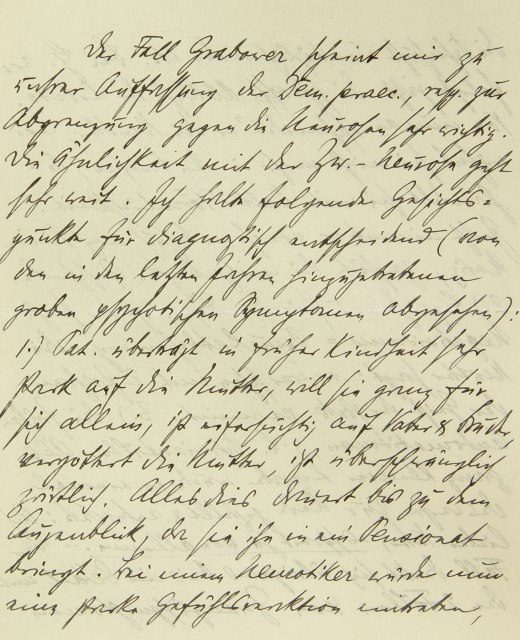 Der Fall Grabower scheint mir zu
unsrer Auffassung der Dem. praec., resp. zur
Abgrenzung gegen die Neurosen sehr wichtig.
Die Ähnlichkeit mit der Zw.-Neurose geht
sehr weit. Ich halte folgende Gesichts-
punkte für diagnostisch entscheidend (von
den in den letzten Jahren hinzugetretenen
groben psychotischen Symptomen abgesehen):
1.) Pat. überträgt in früher Kindheit sehr
stark auf die Mutter, will sie ganz für
sich allein, ist eifersüchtig auf Vater & Bruder,
vergöttert die Mutter, ist überschwänglich
zärtlich. Alles dies dauert bis zu dem
Augenblick, da sie ihn in ein Pensionat
bringt. Bei einem Neurotiker würde nun
eine starke Gefühlsreaktion eintreten,